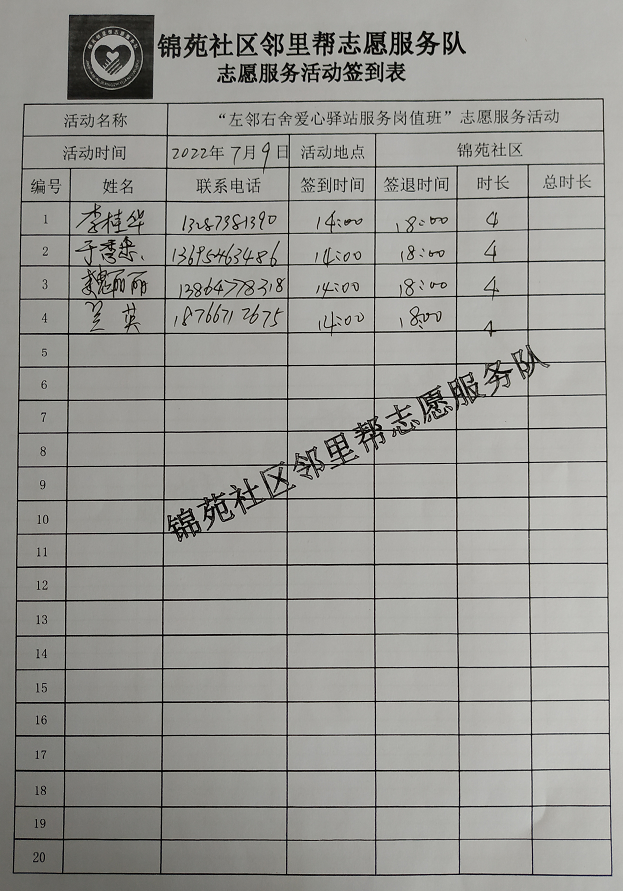 锦苑社区邻里帮志愿服务队
志愿服务活动签到表
活动名称 “左邻右舍爱心驿站服务岗值班”志愿服务活动
活动时间 2022年7月9日 活动地点 锦苑社区
编号 姓名 联系电话 签到时间 签退时间 时长 总时长
1 李桂华 13287381390 14:00 18:00 4
2 于 13695463486 14:00 18:00 4
3 魏丽丽 13864778318 14:00 18:00 4
4 兰英 18766712675 14:00 18:00 4
5
6
7
8
9
10
11
12
13
14
15
16
17
18
19
20
锦苑社区邻里帮志愿服务队